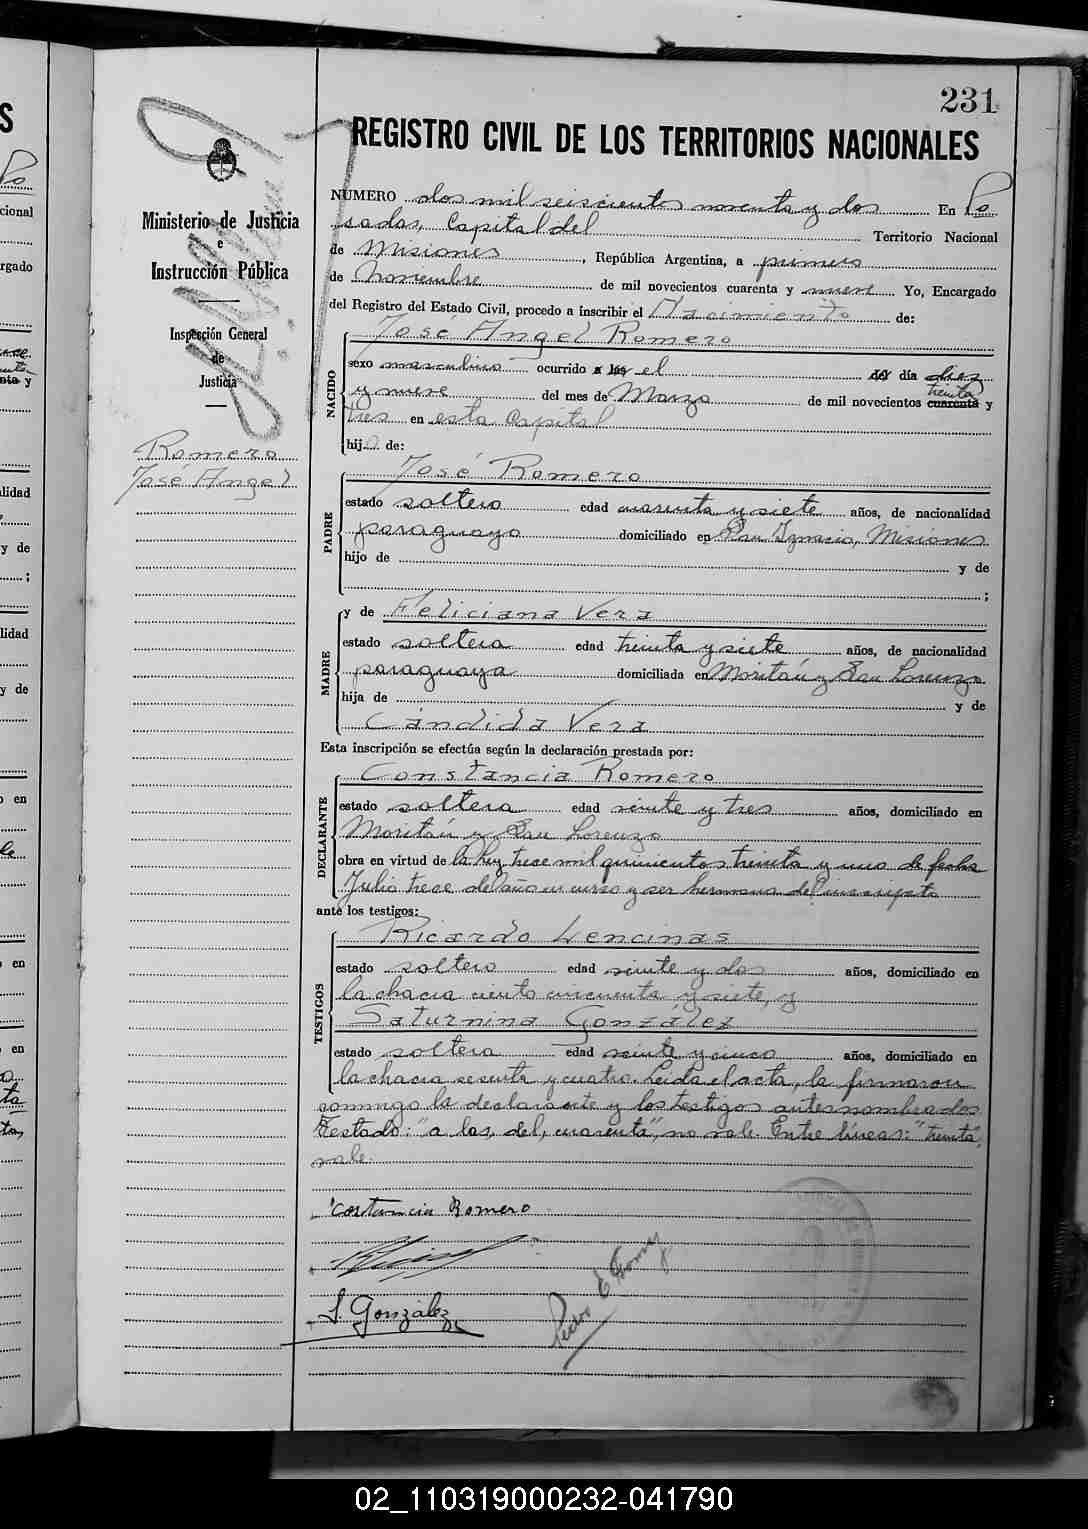 231
REGISTRO CIVIL DE LOS TERRITORIOS NACIONALES
Ministerio de Justicia
e
Instrucción Pública
Inspección General
de
Justicia
Romero
José Angel
NUMERO dos mil seiscientos noventa y dos En Po
sadas, Capital del Territorio Nacional
de Misiones, República Argentina, a primero
de Noviembre de mil novecientos cuarenta y nueve Yo, Encargado
del Registro del Estado Civil, procedo a inscribir el Nacimiento de:
José Angel Romero
NACIDO
sexo masculino ocurrido a las el del día diez
y nueve del mes de Marzo de mil novecientos cuarenta treinta y
tres en esta Capital
hijo de:
José Romero
PADRE
estado soltero edad cuarenta y siete años, de nacionalidad
paraguayo domiciliado en San Ignacio, Misiones
hijo de y de
;
y de Feliciana Vera
MADRE
estado soltera edad treinta y siete años, de nacionalidad
paraguaya domiciliada en y San Lorenzo
hija de y de
Cándida Vera
Esta inscripción se efectúa según la declaración prestada por:
Constancia Romero
DECLARANTE
estado soltera edad veinte y tres años, domiciliado en
y San Lorenzo
obra en virtud de la ley trece mil quinientos treinta y uno de fecha
Julio trece del año en curso y ser hermana del inscripto
ante los testigos:
Ricardo Lencinas
TESTIGOS
estado soltero edad veinte y dos años, domiciliado en
la chacra ciento cincuenta y siete, y
Saturnina González
estado soltera edad veinte y cinco años, domiciliado en
la chacra sesenta y cuatro. Leida el acta, la firmaron
conmigo la declarante y los testigos antes nombrados.
Testado: "a las, del, cuarenta", no vale. Entre líneas: "treinta",
vale.
Costancia Romero
S. González
Pedro E Gomez
02_110319000232-041790